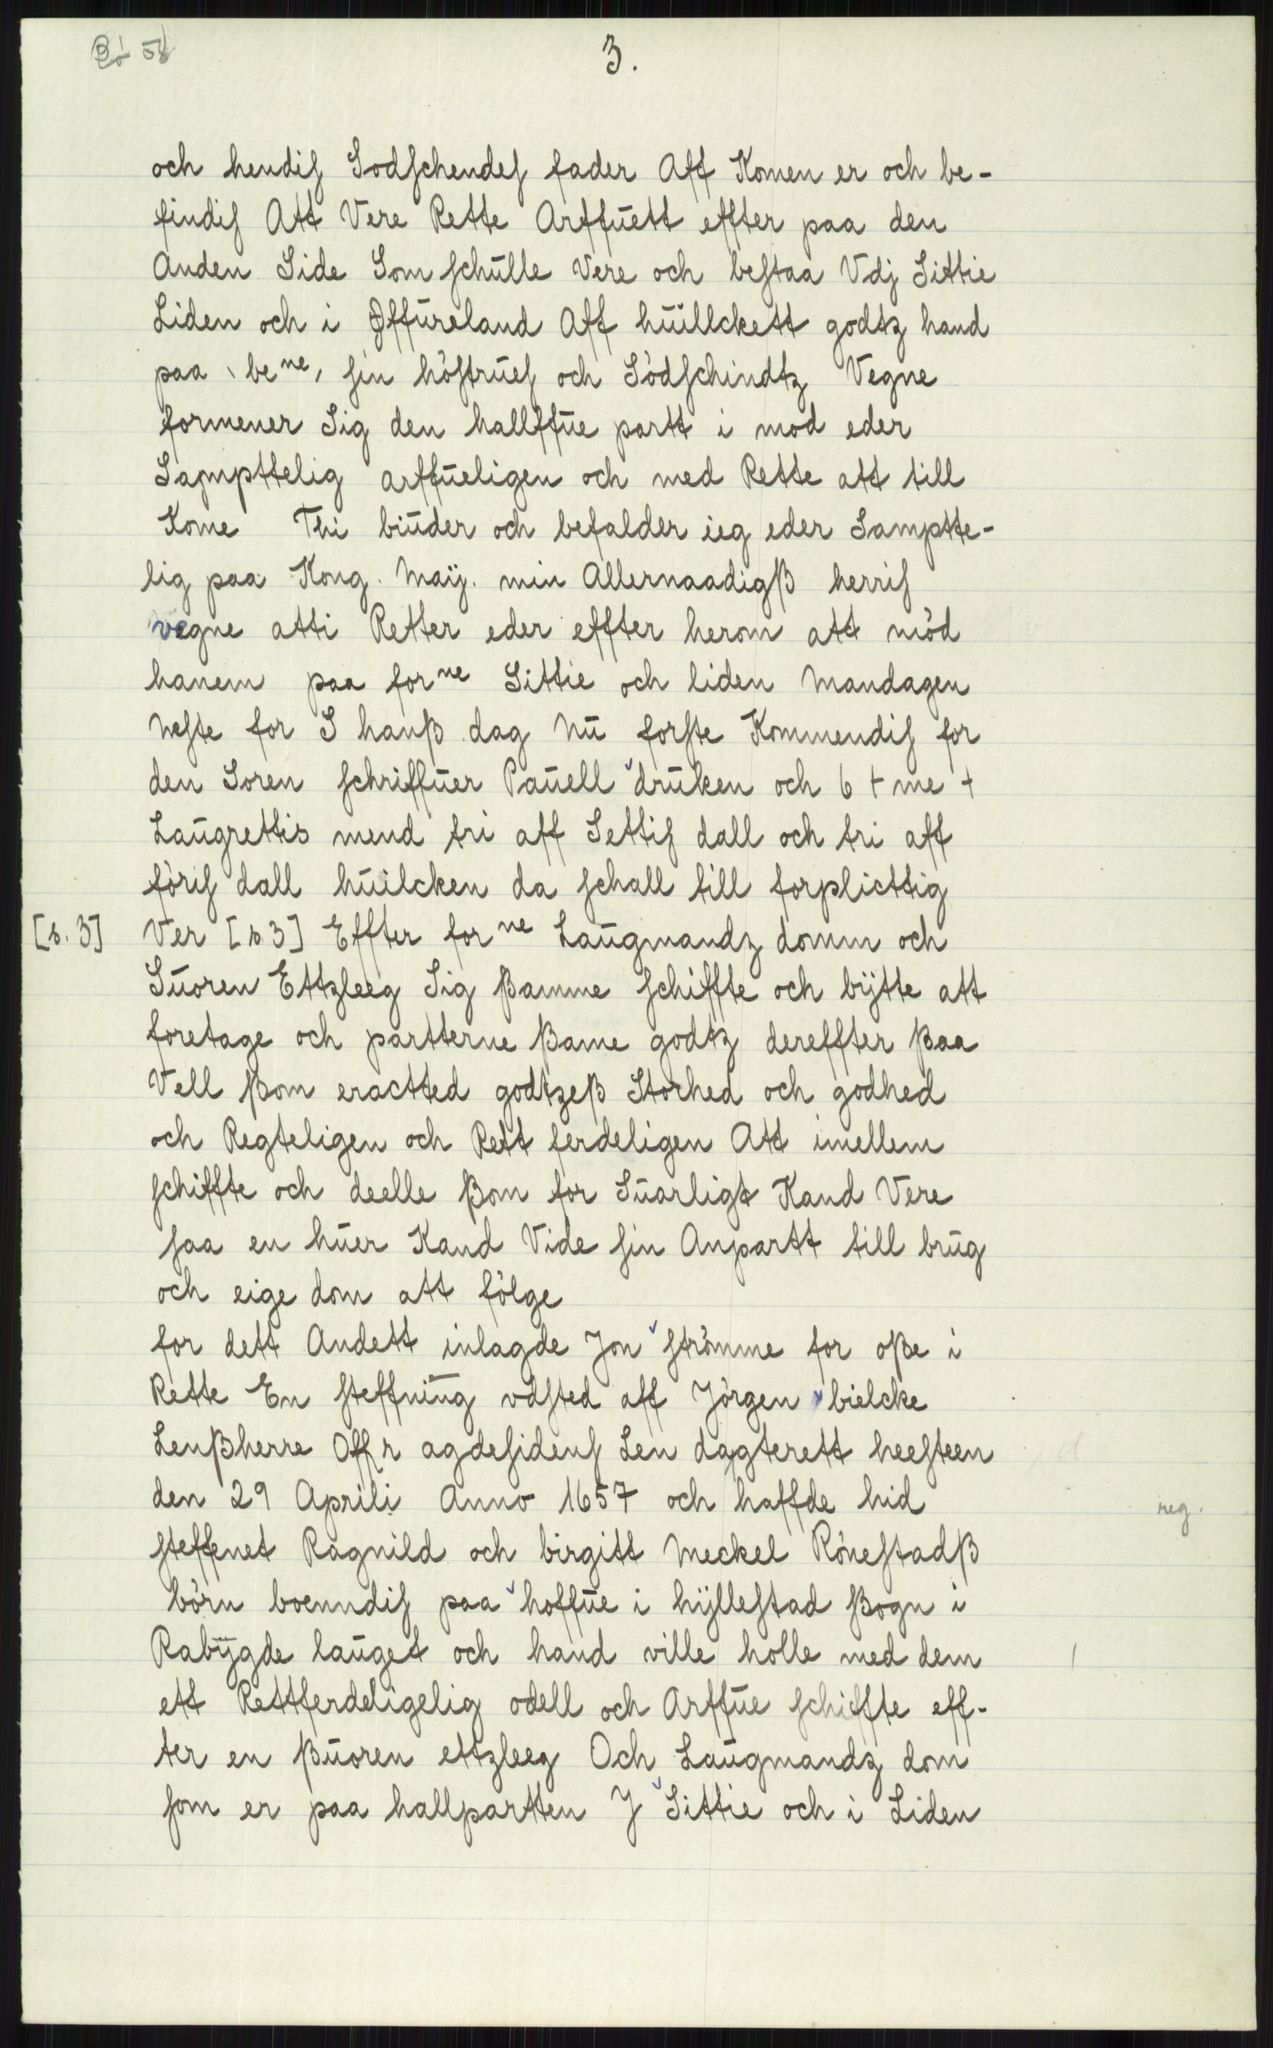 3.
och hendiſ Sodſchendeſ fader Aff Komen er och be-
findiſ Att Vere Rette Arffuett effter paa den
Anden Side Som ſchulle Vere och beſtaa Vdj Sittie
Liden och i Øffureland Aff huillckett godtz hand
paa beⁿᵉ, ſin höſtrueſ och Södſchindtz Vegne
formener Sig den hallffue partt i mod eder
Sampttelig arffueligen och med Rette att till
Kome Thi biuder och befalder ieg eder Samptte-
lig paa Kong. Maÿ. min Allernaadigß herriſ
vegne atti Retter eder effter herom att möd
hanem paa forⁿᵉ Sittie och liden Mandagen
Neſte for S hanß dag Nu forſte Kommendiſ for
den Soren ſchriffuer Pauell druken och 6 + me +
Laugrettis mend tri aff Settiſ dall och tri aff
föriſ dall huilcken da ſchall till forplicttig
[s. 3] Ver [s 3] Effter forⁿᵉ Laugmandz domm och
Suoren Ettzleeg Sig ßamme ſchiffte och bÿtte att
foretage och partterne ßame godtz dereffter ßaa
Vell ßom eractted godtzeß Storhed och godhed
och Regteligen och Rett ferdeligen Att imellem
ſchiffte och deelle ßom for Suarligt Kand Vere
ſaa en huer Kand Vide ſin Anpartt till brug
och eige dom att fölge
for dett Andett inlagde Jon ſtrömme for oße i
Rette En ſteffning vdſted aff Jörgen bielcke
Lenßherre Offr agdeſidenſ Len dagterett heeſteen
den 29 Aprili Anno 1657 och haffde hid
reg.
ſteffenet Ragnild och birgitt Meckel Röneſtadß
börn boenndiſ paa hoffue i hÿlleſtad ßogn i
Rabÿgde lauget och hand ville holle med dem
ett Rettferdeligelig odell och Arffue ſchiffte eff-
ter en ßuoren ettzleeg Och Laugmandz dom
ſom er paa hallpartten J Sittie och i Liden